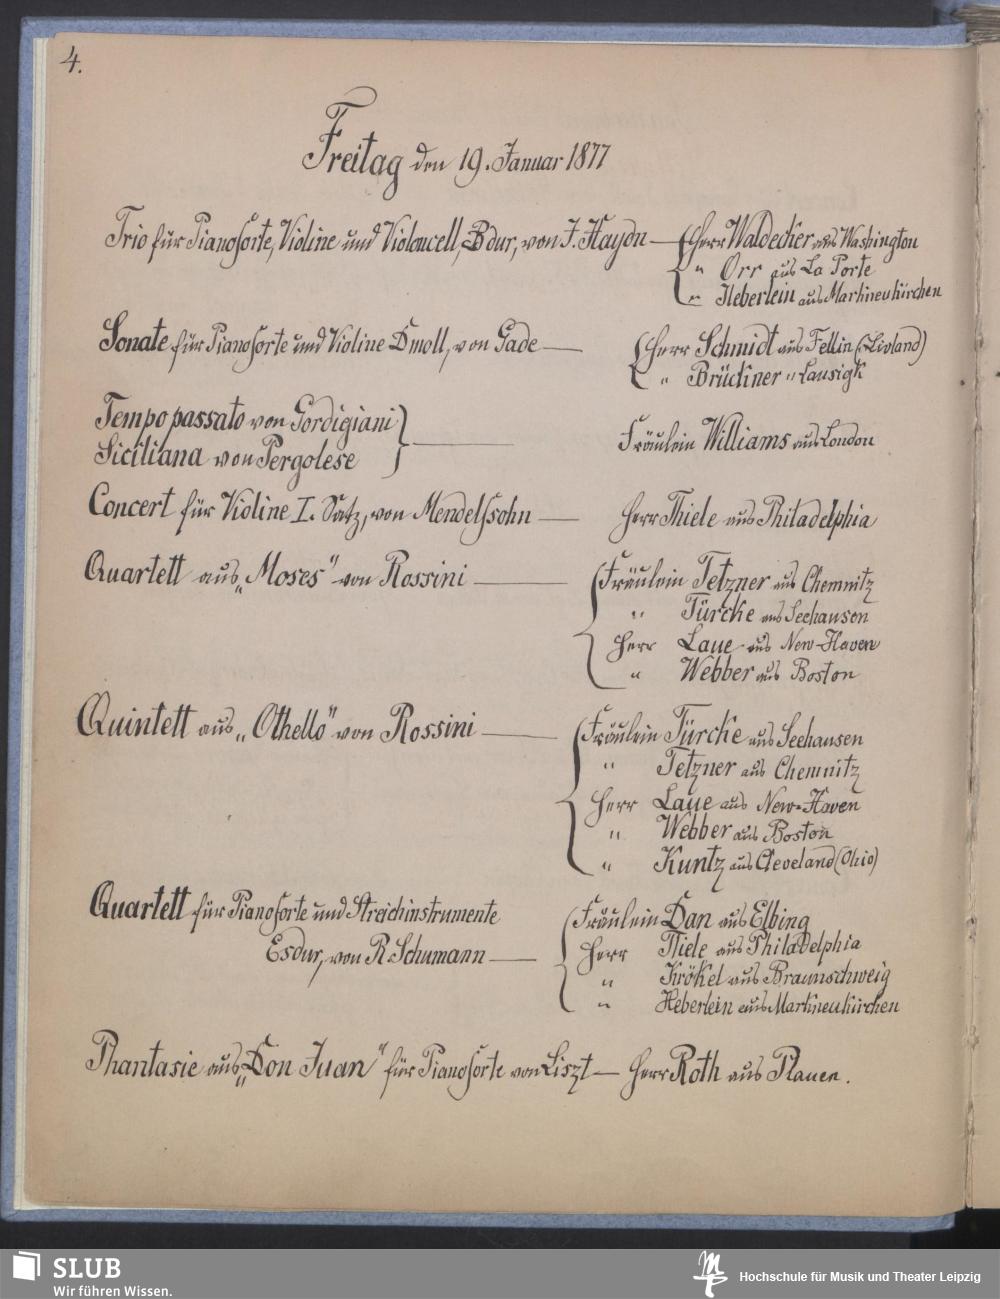 4.
Freitag den 19. Januar 1877
Trio für Pianoforte, Violine und Violoncell, Bdur, von J. Haydn — Herr Waldecker aus Washington
" Orr aus La Porte
" Heberlein aus Markneukirchen
Sonate für Pianoforte und Violine Dmoll, von Gade — Herr Schmidt aus Fellin (Livland)
" Brückner " Lausigk
Tempo passato von Gordigiani
Siciliana von Pergolese — Fräulein Williams aus London
Concert für Violine I. Satz, von Mendelssohn — Herr Thiele aus Philadelphia
Quartett aus „Moses" von Rossini — Fräulein Tetzner aus Chemnitz
" Türcke aus Seehausen
Herr Laue aus New-Haven
" Webber aus Boston
Quintett aus „Othello" von Rossini — Fräulein Türcke aus Seehausen
" Tetzner aus Chemnitz
Herr Laue aus New-Haven
" Webber aus Boston
" Kuntz aus Cleveland (Ohio)
Quartett für Pianoforte und Streichinstrumente
Esdur, von R. Schumann — Fräulein Dan aus Elbing
Herr Thiele aus Philadelphia
" Krökel aus Braunschweig
" Heberlein aus Markneukirchen
Phantasie aus „Don Juan" für Pianoforte von Liszt — Herr Roth aus Plauen.
SLUB
Wir führen Wissen.
Hochschule für Musik und Theater Leipzig